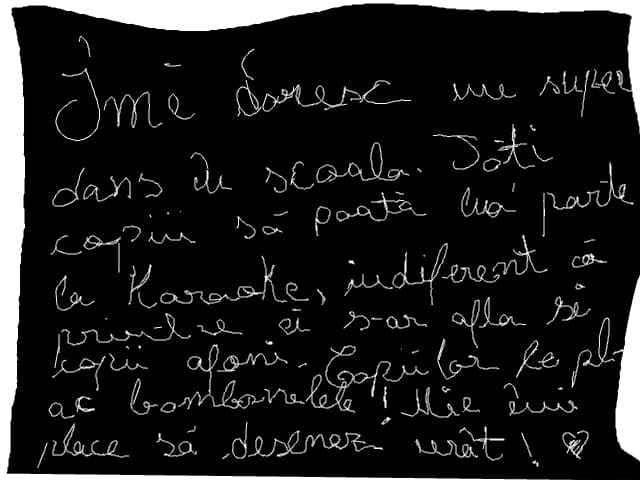 Îmĕ doresc un super
dans în scoala. Toti
copiii să poată lua parte
la Karaoke, indiferent că
printre ei s-ar afla și
copii afoni. Copiilor le pl-
ac bomboanele! Mie îmi
place să desenez urât! ♡